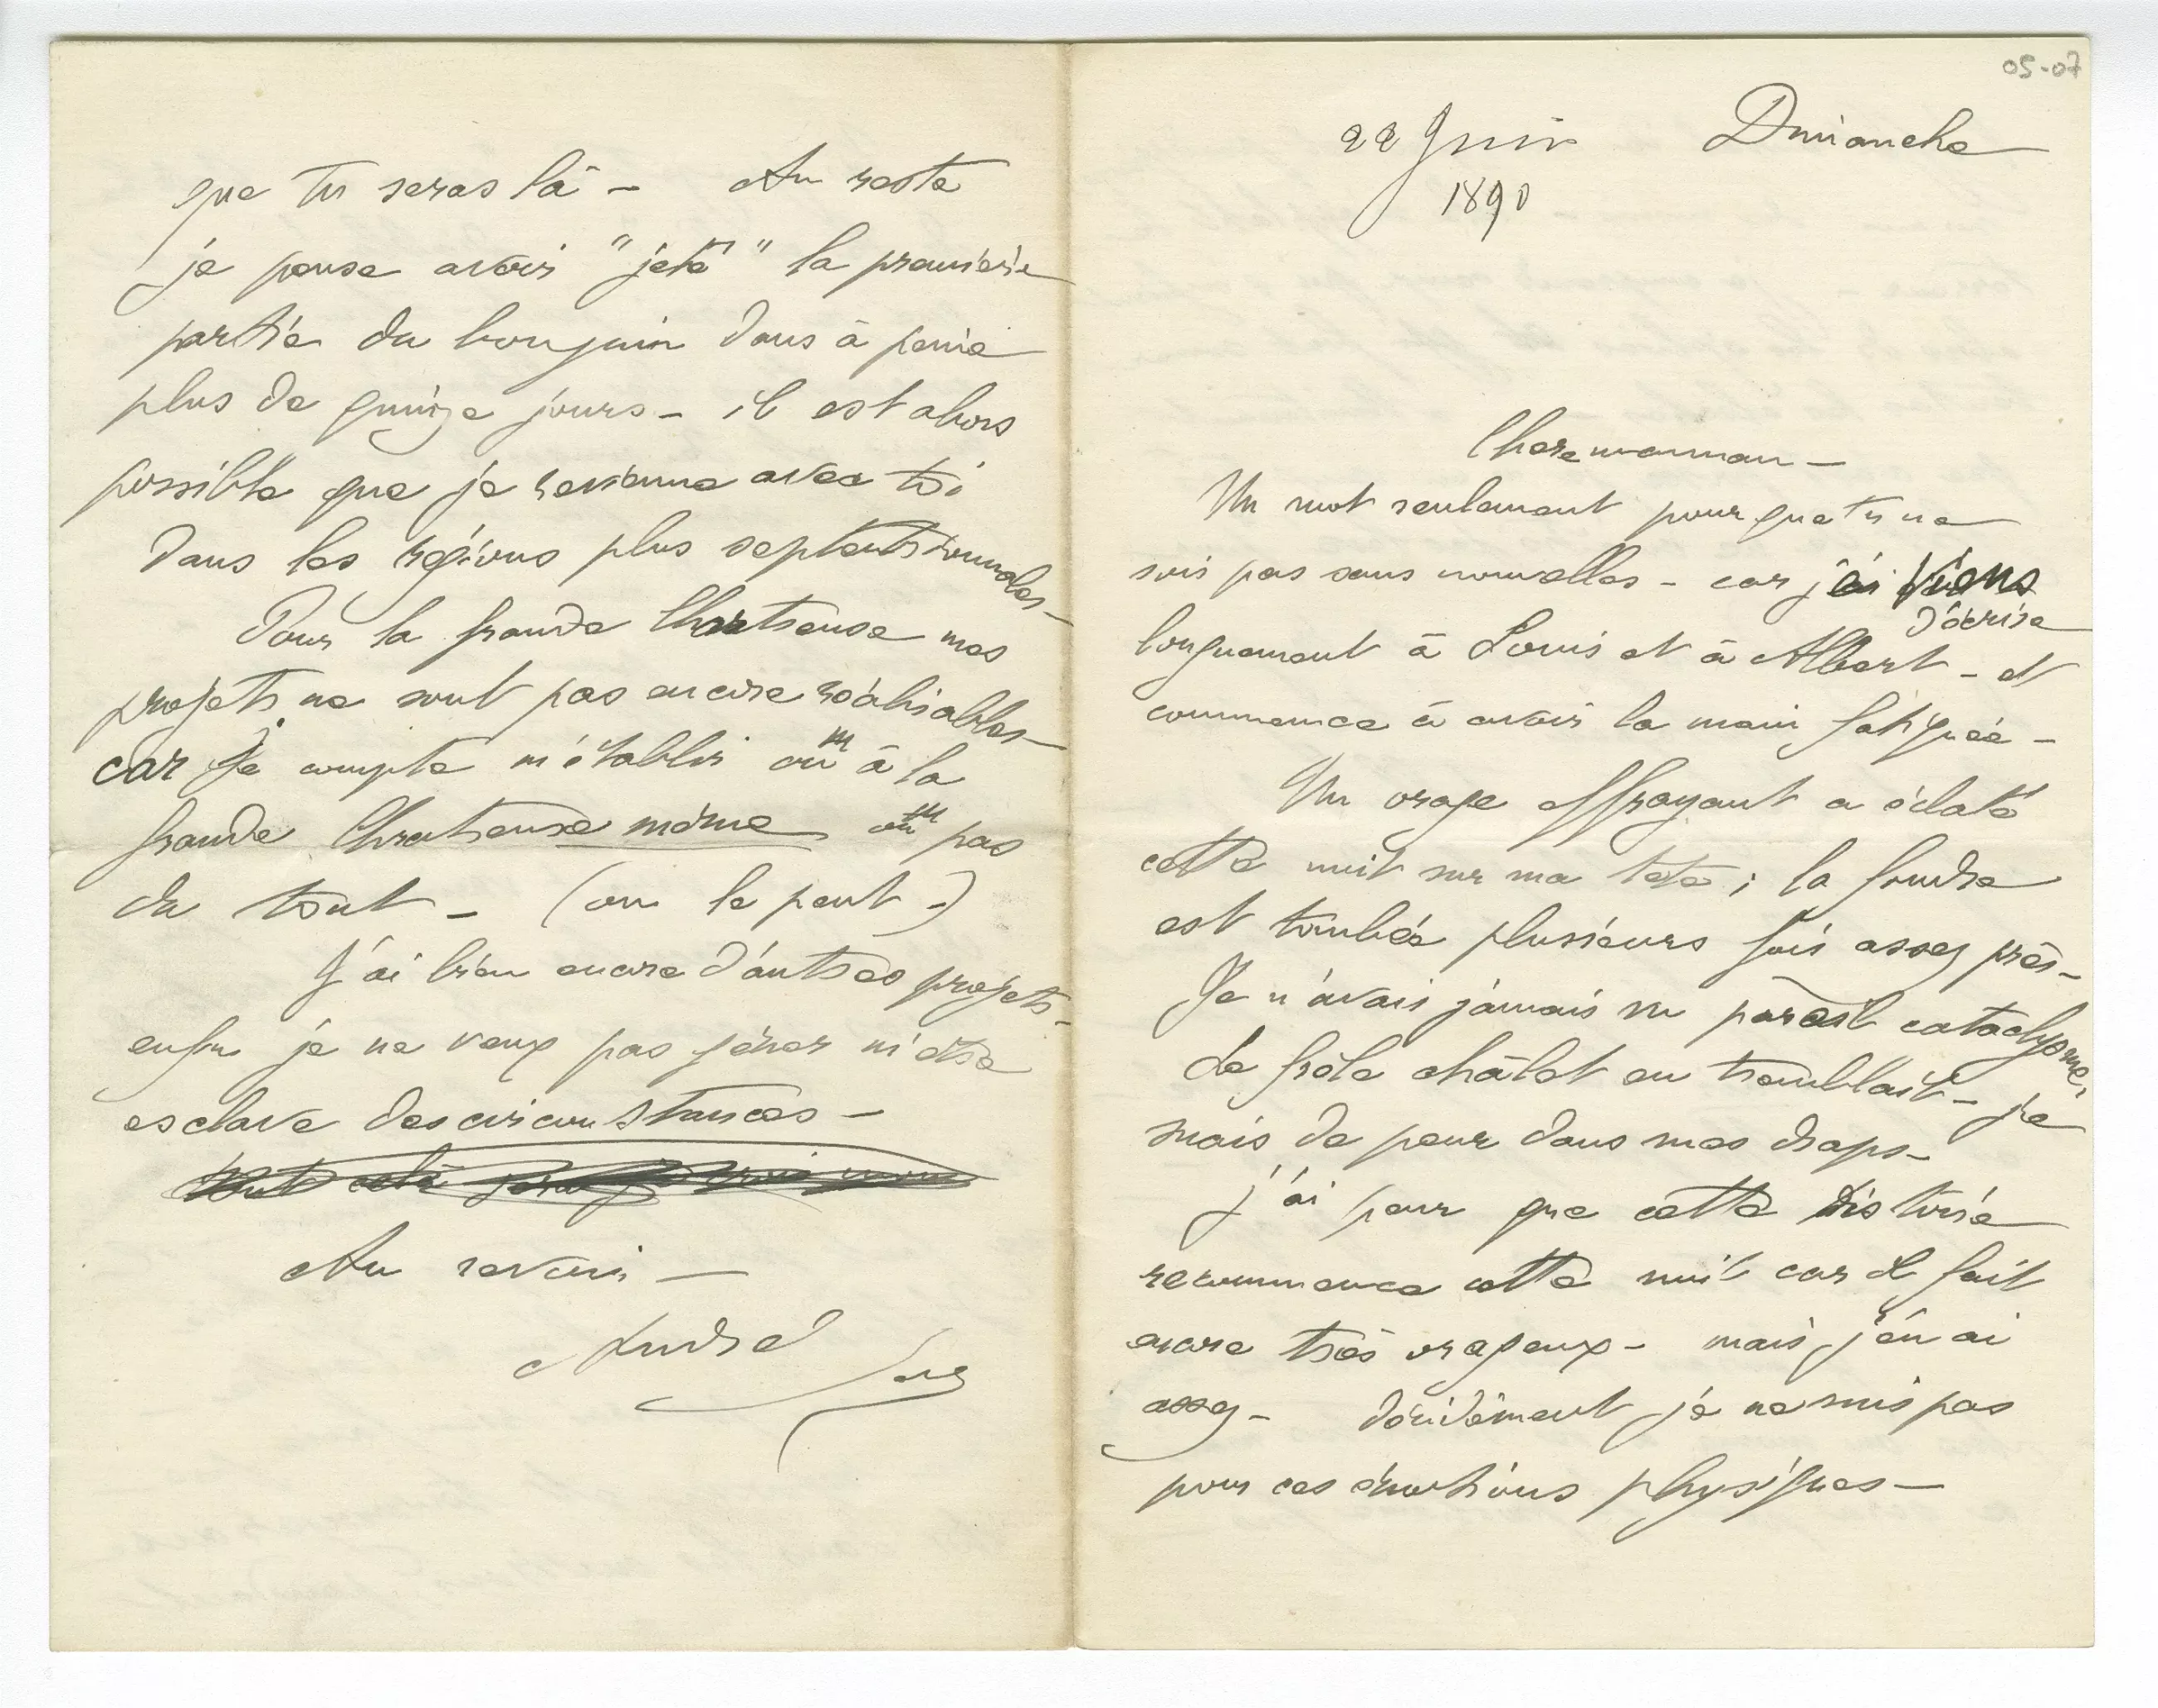 05-07
22 Juin Dimanche
1890
Chere maman –
Un mot seulement pour que tu ne
sois pas sans nouvelles – car je viens
d'écrire
longuement à Louis et à Albert – et
commence à avoir la main fatiguée –
Un orage effrayant a éclaté
cette nuit sur ma tête ; la foudre
est tombée plusieurs fois assez près –
Je n'avais jamais vu pareil cataclysme,
Le frêle châlet en tremblait – je
suais de peur dans mes draps –
j'ai peur que cette histoire
recommence cette nuit car il fait
encore très orageux – mais j'en ai
assez – décidément je ne suis pas
pour ces émotions physiques –
que tu seras là – Au reste
je pense avoir "jeté" la première
partie du bouquin dans à peine
plus de quinze jours – il est alors
possible que je revienne avec toi
dans les régions plus septentrionales –
Pour la grande Chartreuse mes
projets ne sont pas encore réalisables –
car je compte m'établir ou à la
grande Chartreuse même ou pas
du tout – (on le peut –)
J'ai bien encore d'autres projets –
enfin je ne veux pas gêner ni être
esclave des circonstances –
tout cela
Au revoir –
André